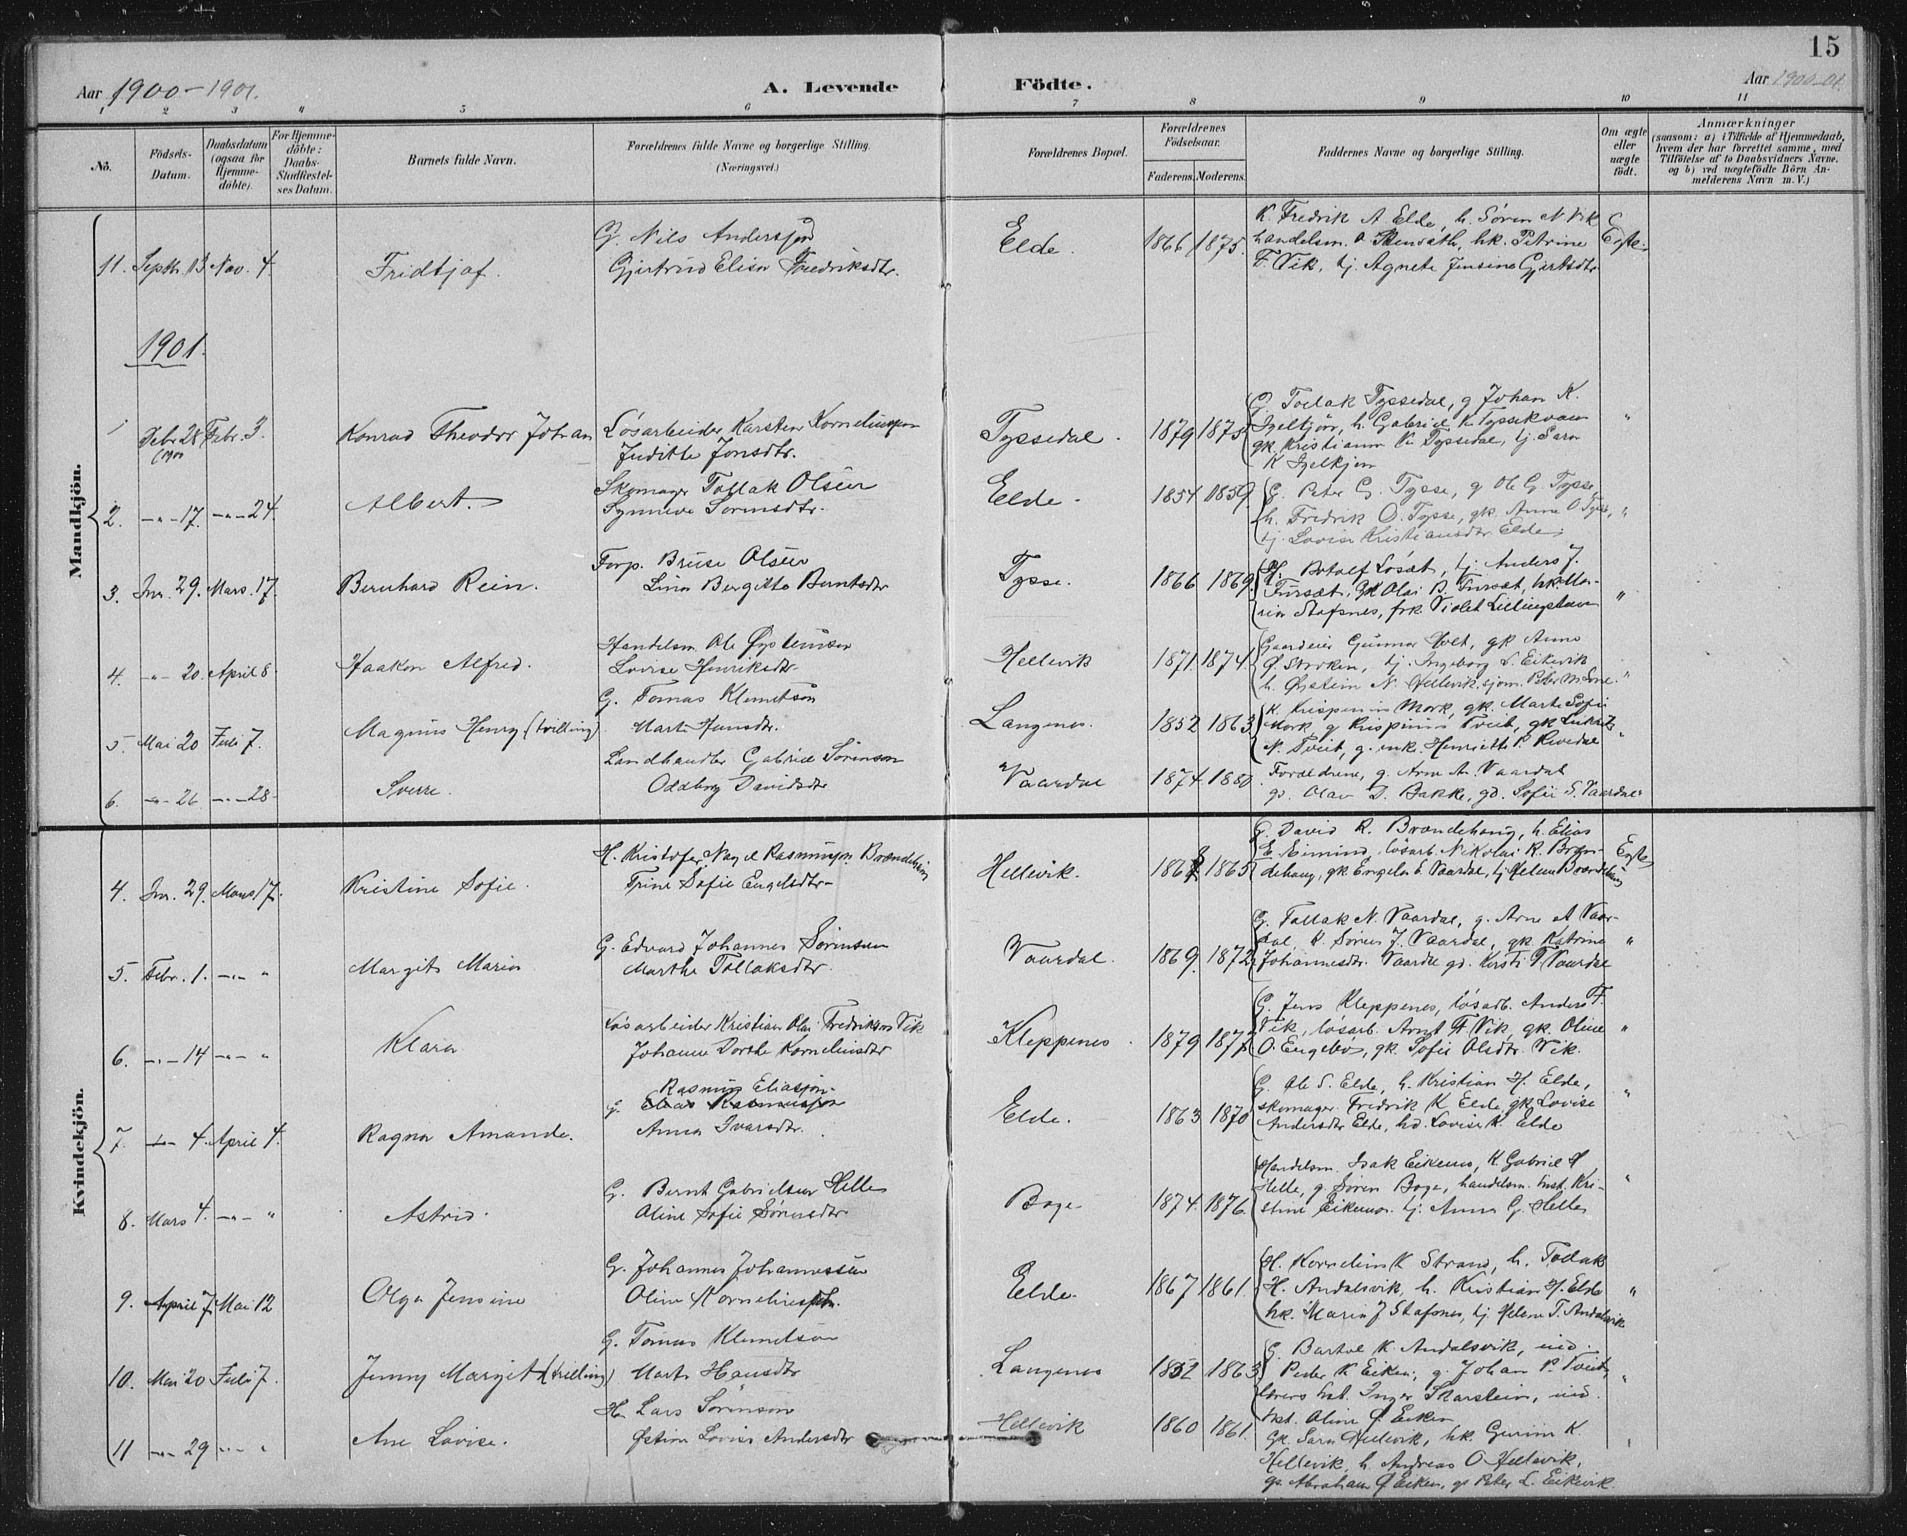 15
Aar 1900-1901.
A. Levende Födte.
Aar 1900-01.
1 2 3 4 5 6 7 8 9 10 11
No.
Födsels-Datum.
Daabsdatum (ogsaa for Hjemmedöbte).
For Hjemmedöbte: Daabs-Stadfæstelses Datum.
Barnets fulde Navn.
Forældrenes fulde Navne og borgerlige Stilling.
(Næringsvei.)
Forældrenes Bopæl.
Forældrenes Födselsaar.
Faderens. Moderens.
Faddernes Navne og borgerlige Stilling.
Om ægte eller uægte födt.
Anmærkninger
(saasom: a) i Tilfælde af Hjemmedaab, hvem der har forrettet samme, med Tilföielse af to Daabsvidners Navne, og b) ved uægtefödte Börn Anmelderens Navn m. V.)
Mandkjön.
11. Septb. 13 Nov. 4. Fridtjof.
G. Nils Anderssen
Gjertrud Elisa Fredriksdtr.
Elde. 1866 1875.
K. Fredrik A. Elde, h. Søren N. Vik
handelsm. O. hk. Petrine
F. Vik, tj. Agnete Jensine Gjertsdtr
Egte
1901.
1 Febr. 28 1900 Febr. 3. Konrad Theodor Johan
Løsarbeider Karsten Korneliussen
Judithe Jonsdtr.
Tyssedal. 1879 1875
G. Tollak Tyssedal, g Johan K.
h. Gabriel K. Tyssekvam
gk. Kristianne K. Tyssedal, tj. Sara
K.
2. -"- 17. -"- 24. Albert.
Skomager Tollak Olsen
Synneve Sørensdtr.
Elde. 1854 1859.
G. Peter G. Tysse, g Ole G. Tysse,
h. Fredrik O. Tysse, gk. Anne O Tysse, "
tj. Lovise Kristiansdtr Elde.
3. Jnr. 29. Mars. 17. Bernhard Rein.
Forp. Bruse Olsen
Lina Bergitte Berntsdtr
Tysse. 1866 1869
Botolf Løsæt, tj. Anders J.
Fursæt, gk Olai B. Fursæt, hk Ma-
ria Stafsnes, frk Violet "
4. -"- 20. April 8. Haakon Alfred.
Handelsm. Ole Øystensen
Lovise Henriksdtr.
Hellevik 1871. 1874.
Gaardeier Gunnar Holt, gk Anne
Ø. Storken, tj. Ingeborg L. Eikevik
h. Øystein N. Hellevik, sjom. Peter "
5. Mai 20 Juli 7. Magnus Henry (tvilling)
G. Tomas Klemetsen
Marte Hansdtr.
Langenes. 1852 1863
K. Krispinus Mork, gk. Marte Sofie
Mork, g Krispinus Tveit, gk
N. Tveit, g. enk. Henriette P. "
6. -"- 26 -"- 28. Sverre.
Landhandler Gabriel Sörenson
Oddborg Davidsdtr
Vaardal 1874. 1880.
Forældrene, g. Arne A. Vaardal
gs. Olav D. Bakke, gd. Sofie S. Vaardal
Kvindekjön.
4. Jnr. 29. Mars 17. Kristine Sofie.
H. Kristofer Nagel Rasmussen Brændehaug
Trine Sofie Engelsdtr
Hellevik. 186 1865
G. David R. Brændehaug, h. Elias
E. løsarb. Nikolai R. Bræn-
dehaug, gk Engeline E. Vaardal, tj Helene Brændehaug
Egte
5. Febr. 1. -"- " Margit Maria
G. Edvard Johannes Sörensen
Marthe Tollaksdtr.
Vaardal. 1869. 1872
G. Tollak N. Vaardal, g. Arne A Vaar-
dal, K. Søren J. Vaardal, gk Katrine "
Johannesdtr. Vaardal gd. Kersti T. Vaardal
6. -"- 14 -"- " Klara
Løsarbeider Kristian Olai Fredriksen Vik
Johanne Dorthe Korneliusdtr
Kleppenes. 1879 187
G. Jens Kleppenes, løsarb. Anders F.
Vik, løsarb. Arnt F. Vik, gk. Oline "
O. Engebø, gk. Sofie Olsdtr. Vik.
7. -"- 4. April 4. Ragna Amanda.
Rasmus Eliasson
G. Elias Rasmussen
Anna Ivarsdtr.
Elde. 1863 1870
G. Ole S. Elde, h. Kristian H. Elde, "
skomager Fredrik K Elde, gk. Lovise
Andersdtr Elde, hd. Lovise K. Elde
8. Mars 4. -"- " Astrid.
G. Bernt Gabrielsen Helle
Oline Sofie Sörensdtr
Boge 1874. 1876.
Handelsm. Isak Eikenes, K. Gabriel H.
Helle, g. Søren Boge, handelsm. hust. Kri- "
stine Eikenes. tj. Anna G. Helle
9. April 7. Mai 12 Olga Jensine
G. Johannes Johannessen
Oline Korneliusdtr.
Elde. 1867 1861.
H. Kornelius K Strand, h. Tollak
H. Andalsvik, h. Kristian H. Elde "
hk. Maria J Stafsnes, tj Helene T. Andalsvik
10. Mai 20 Juli 7. Jenny Margit (tvilling)
G. Tomas Klemetsen
Marte Hansdtr
Langenes 1852 1863
G. Bartol K Andalsvik, ind.
Peder K Eiken, g. Johan P. Tveit,
lærers hst. Inger Skarstein, ind. "
hst. Oline Ø. Eiken
11 -"- 29 -"- " Ane Lovise.
H. Lars Sørenson
Østine Lovise Andersdtr
Hellevik 1860 1861.
Gk. Sara Hellevik, hk. K.
Hellevik, h. Andreas O Hellevik,
gs. Abraham Ø Eiken, gs Peter L. Eikevik